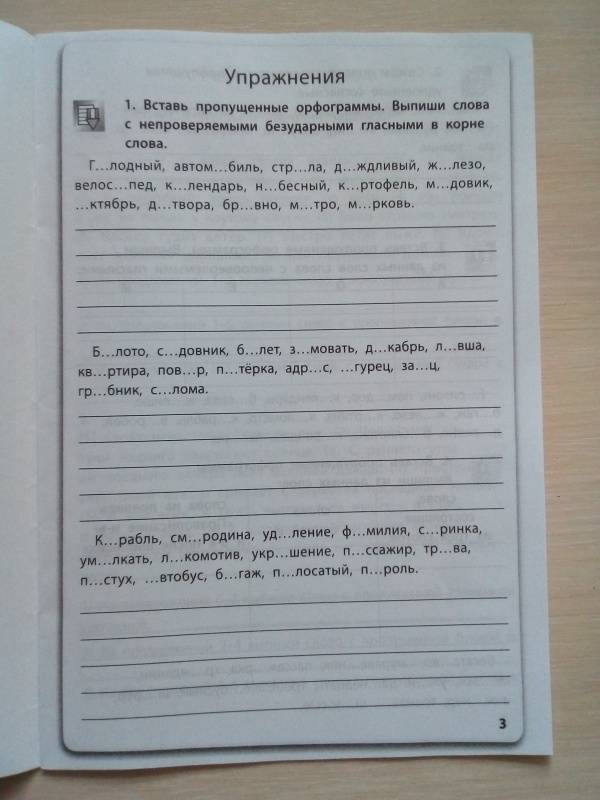 Упражнения
1. Вставь пропущенные орфограммы. Выпиши слова
с непроверяемыми безударными гласными в корне
слова.
Г...лодный, автом...биль, стр...ла, д...ждливый, ж...лезо,
велос...пед, к...лендарь, н...бесный, к...ртофель, м...довик,
...ктябрь, д...твора, бр...вно, м...тро, м...рковь.
Б...лото, с...довник, б...лет, з...мовать, д...кабрь, л...вша,
кв...ртира, пов...р, п...тёрка, адр...с, ...гурец, за...ц,
гр...бник, с...лома.
К...рабль, см...родина, уд...ление, ф...милия, с...ринка,
ум...лкать, л...комотив, укр...шение, п...ссажир, тр...ва,
п...стух, ...втобус, б...гаж, п...лосатый, п...роль.
3